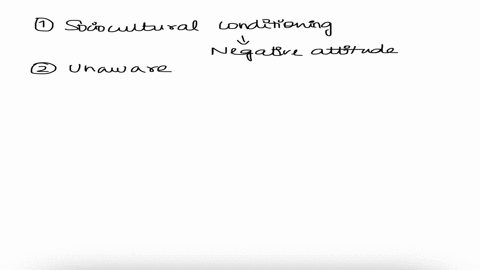 ① Sociocultural conditioning
↓
Negative attitude
② Unaware